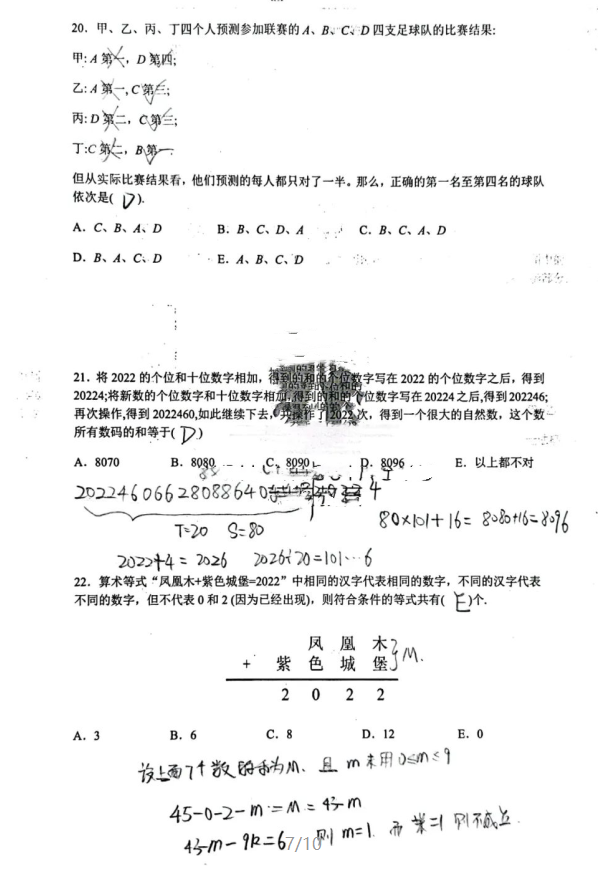 20. 甲、乙、丙、丁四个人预测参加联赛的 A、B、C、D 四支足球队的比赛结果:
甲: A 第一, D 第四;
乙: A 第一, C 第三;
丙: D 第二, C 第三;
丁:C 第二, B 第一.
但从实际比赛结果看，他们预测的每人都只对了一半。那么，正确的第一名至第四名的球队
依次是( D ).
A. C、B、A、D B. B、C、D、A C. B、C、A、D
D. B、A、C、D E. A、B、C、D
21. 将 2022 的个位和十位数字相加，得到的和的个位数字写在 2022 的个位数字之后，得到
20224;将新数的个位数字和十位数字相加,得到的和的个位数字写在 20224 之后,得到 202246;
再次操作,得到 2022460,如此继续下去，共操作了 2022 次，得到一个很大的自然数，这个数
所有数码的和等于( D )
A. 8070 B. 8080 C. 8090 D. 8096 E. 以上都不对
20224606628088640 4
T=20 S=80 80×101+16= 8080+16=8096
2022+4=2026 2026÷20=101…6
22. 算术等式“凤凰木+紫色城堡=2022”中相同的汉字代表相同的数字，不同的汉字代表
不同的数字，但不代表 0 和 2 (因为已经出现)，则符合条件的等式共有( E )个.
凤 凰 木
+ 紫 色 城 堡 M.
2 0 2 2
A. 3 B. 6 C. 8 D. 12 E. 0
设上面7个数的和为M. 且 m未用 0≤m≤9
45-0-2-m=M=43-m
43-m-9k=6 则 m=1. 而 紫=1 则不成立.
7/10